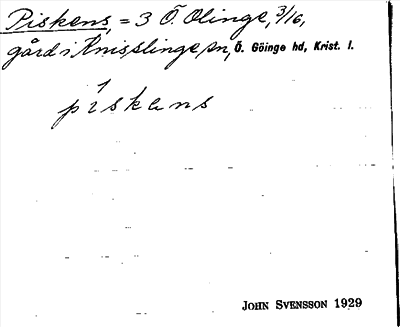 Piskens, = 3 Ö. Olinge, 3/16,
gård i Knisslinge sn, Ö. Göinge hd, Krist. l.
pìskens
JOHN SVENSSON 1929